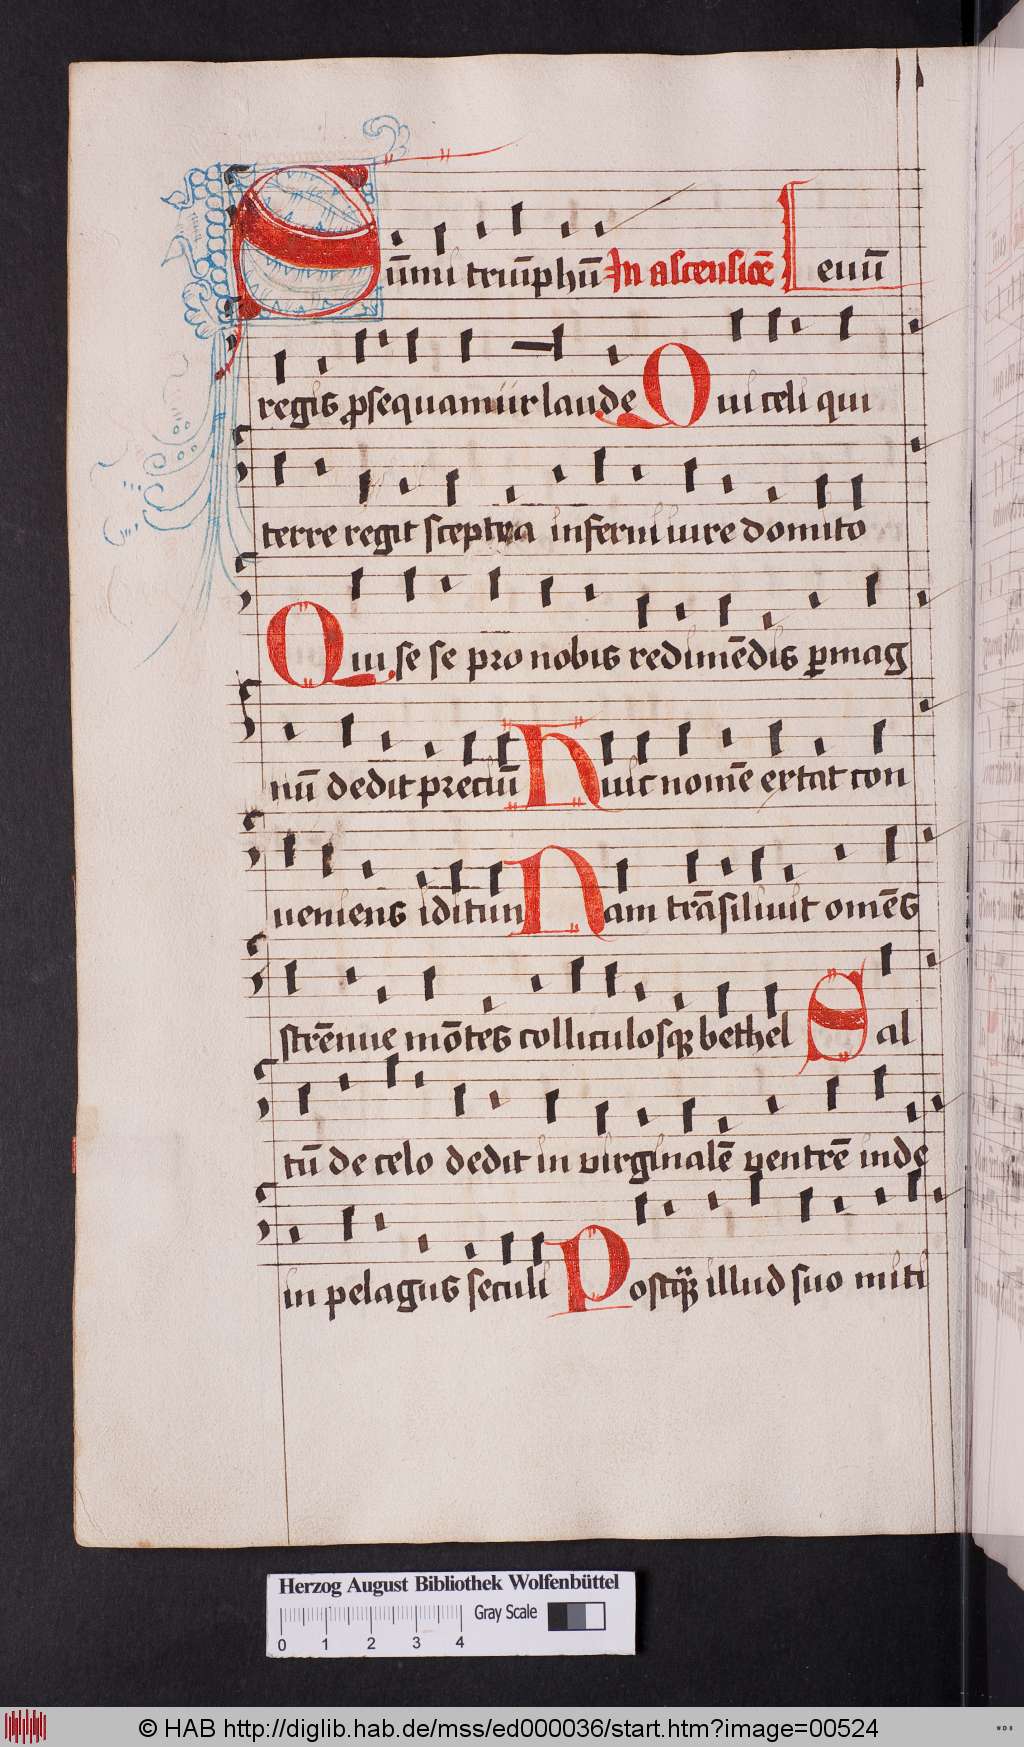 Sūmi triūphū In ascensiōe Leuū
regis ꝓsequamur laude Qui celi qui
terre regit sceptra inferni iure domito
Qui se se pro nobis redimēdis ꝑmag
nū dedit preciū Huic nomē extat con
ueniens iditun Nam trāsiliuit omēs
strēnue mōtes colliculosqꝫ bethel Sal
tū de celo dedit in virginalē ventrē inde
in pelagus seculi Postqꝫ illud suo miti
Herzog August Bibliothek Wolfenbüttel
Gray Scale
0 1 2 3 4
© HAB http://diglib.hab.de/mss/ed000036/start.htm?image=00524